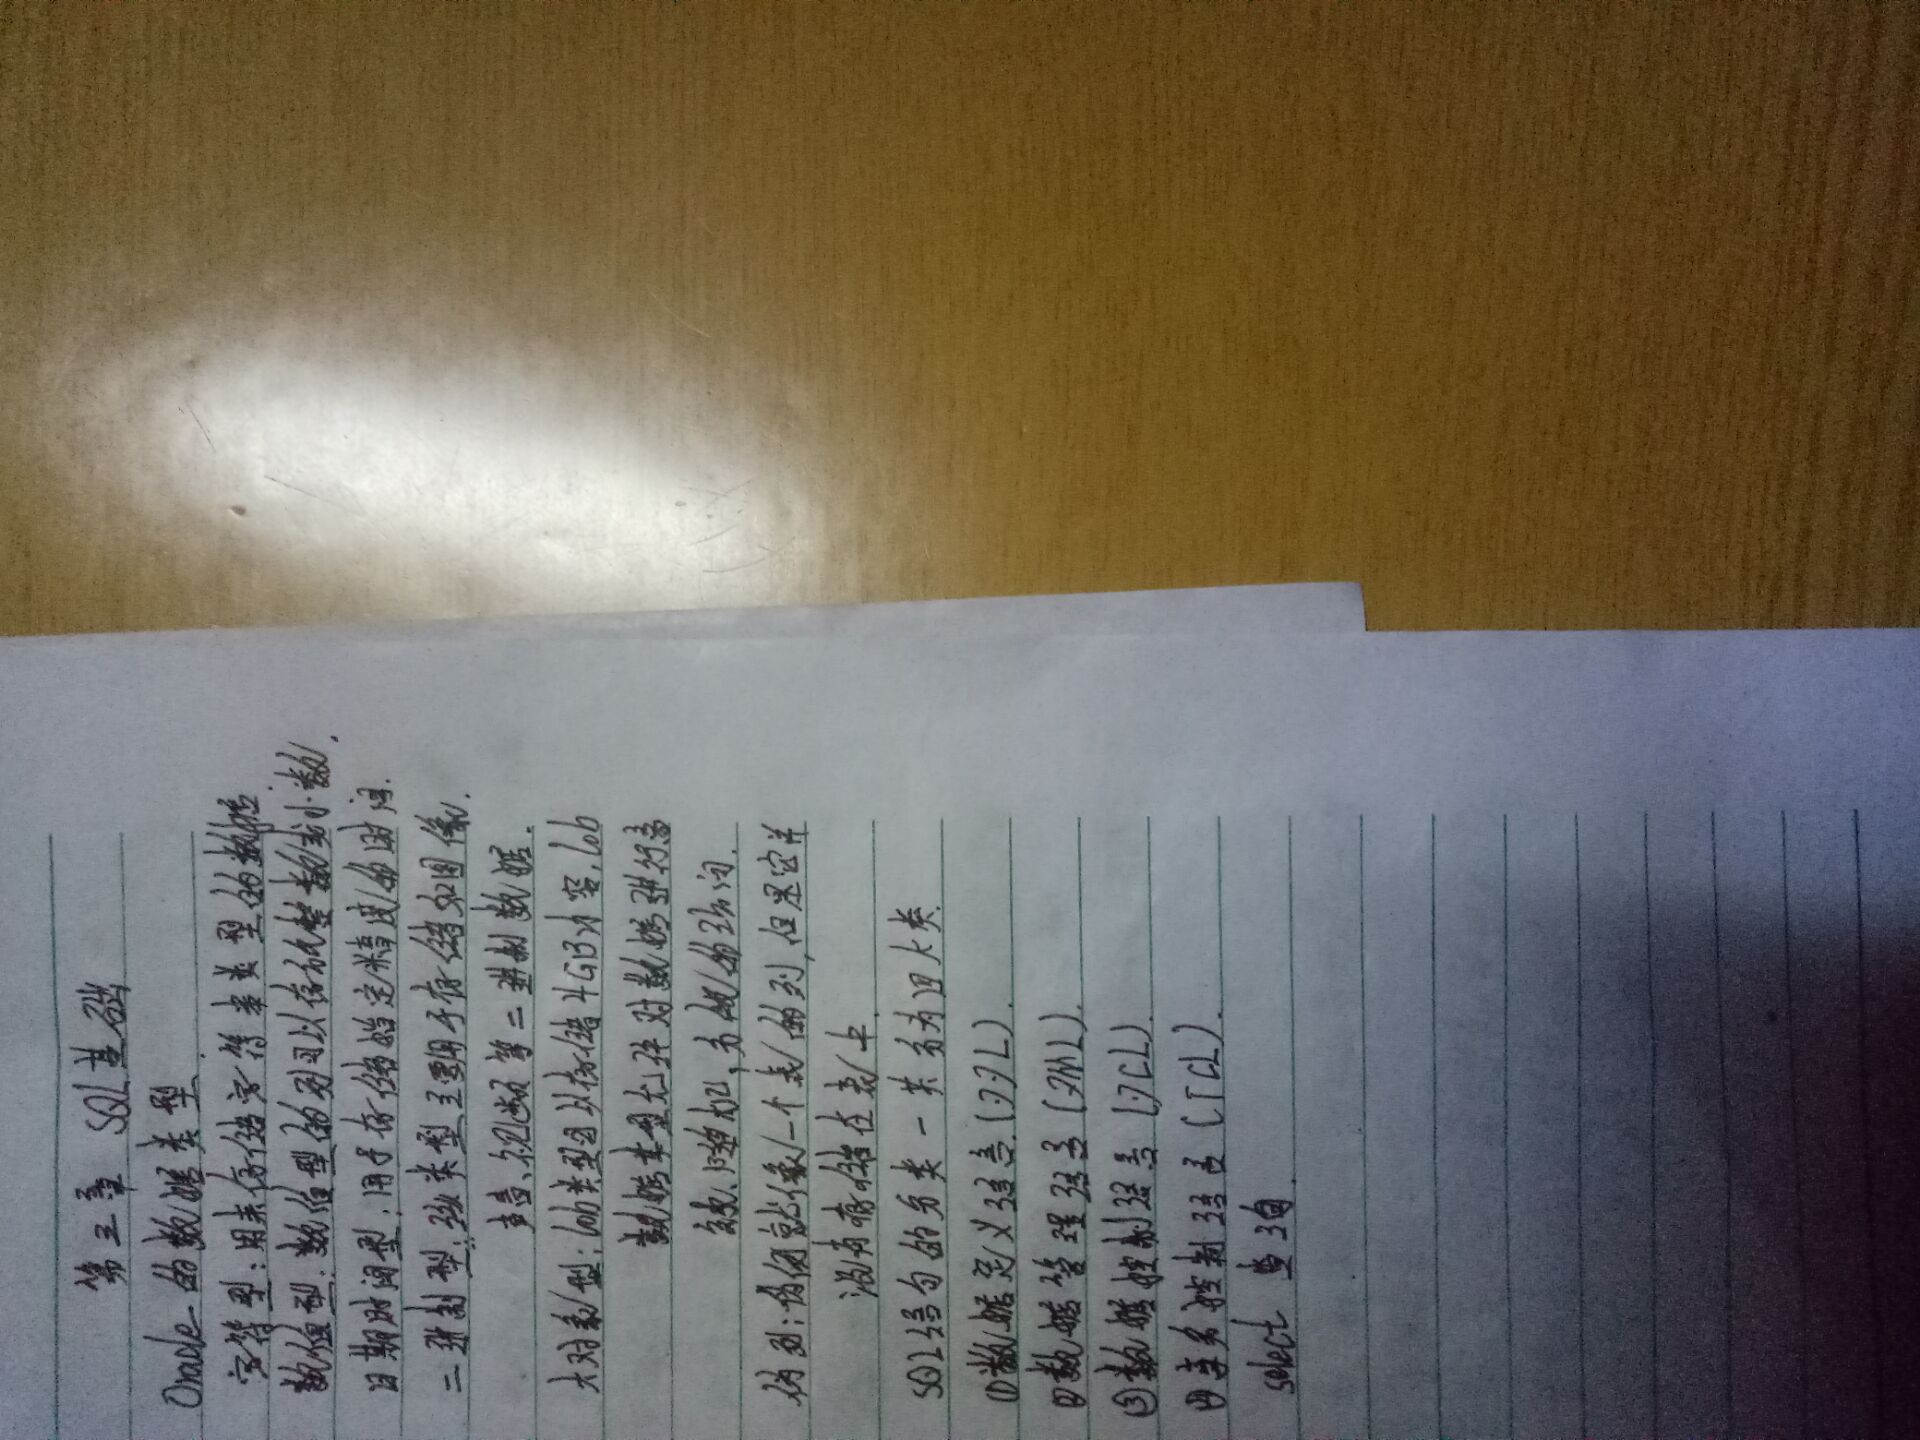 第三章 SQL基础
Oracle的数据类型
字符型:用来存储字符串类型的数据.
数值型:数值型的列可以存储整数或小数.
日期时间型:用于存储指定精度的时间.
二进制型:该类型主要用于存储如图像.
声音、视频等二进制数据.
大对象型:lob类型可以存储4GB内容,lob
数据类型允许对数据进行高
效、随机、分段的访问.
伪列:伪列就像一个表的列,但是它并
没有存储在表中
SQL语句的分类一共分为四大类.
①数据定义语言(DDL).
②数据管理语言(DML).
③数据控制语言(DCL).
④事务控制语言(TCL).
select 查询.